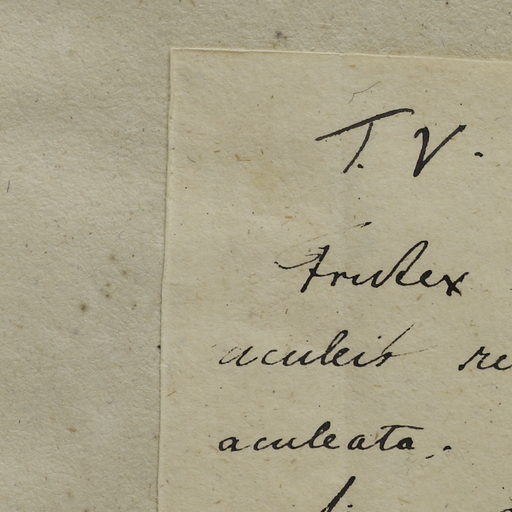 T. V.
Frutex
aculeis re
aculeata.